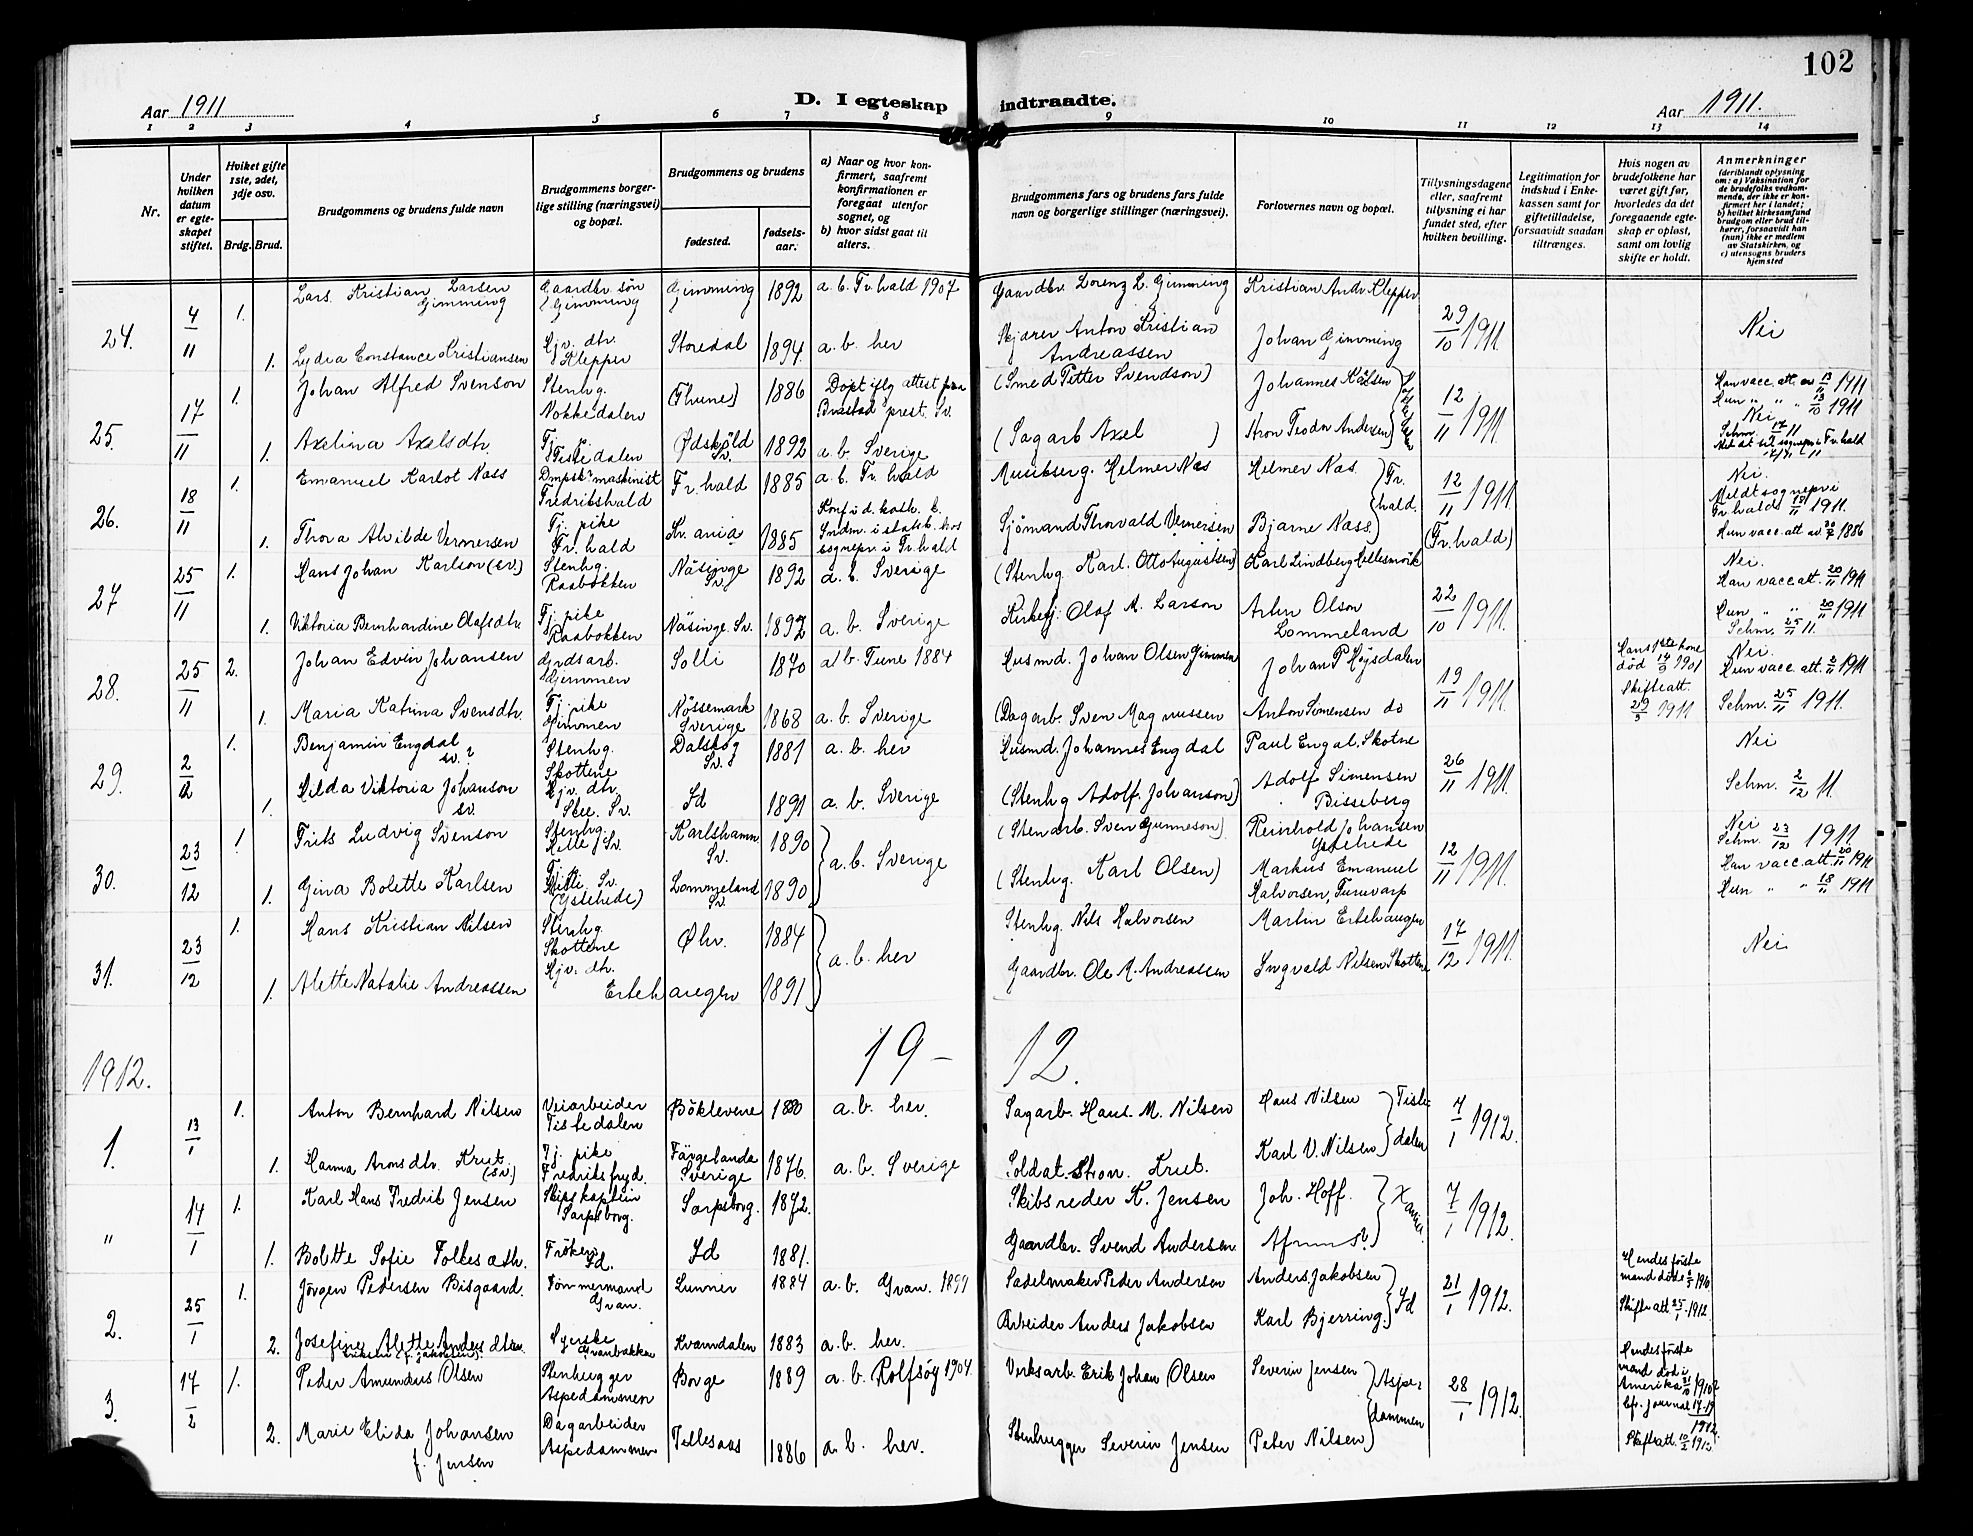 102
Aar 1911
D. I egteskap indtraadte.
Aar 1911.
1 2 3 4 5 6 7 8 9 10 11 12 13 14
Nr.
Under hvilken datum er egteskapet stiftet.
Hvilket gifte 1ste, 2det, 3dje osv.
Brdg. Brud.
Brudgommens og brudens fulde navn
Brudgommens borgerlige stilling (næringsvei) og bopæl.
Brudgommens og brudens
fødested.
fødselsaar.
a) Naar og hvor konfirmert, saafremt konfirmationen er foregaat utenfor sognet, og
b) hvor sidst gaat til alters.
Brudgommens fars og brudens fars fulde navn og borgerlige stillinger (næringsvei).
Forlovernes navn og bopæl.
Tillysningsdagene eller, saafremt tillysning ei har fundet sted, efter hvilken bevilling.
Legitimation for indskud i Enkekassen samt for giftetilladelse, forsaavidt saadan tiltrænges.
Hvis nogen av brudefolkene har været gift før, hvorledes da det foregaaende egteskap er opløst, samt om lovlig skifte er holdt.
Anmerkninger (deriblandt oplysning om: a) Vaksination for de brudefolks vedkommende, der ikke er konfirmert her i landet; b) hvilket kirkesamfund brudgom eller brud tilhører, forsaavidt han (hun) ikke er medlem av Statskirken, og c) utensogns bruders hjemsted
24. 4/11 1. Lars Kristian Larsen Gimming Gaardbr. søn Gimming Gimming 1892 a. b. Fr.hald 1907 Gaardbr. Lorenz L. Gimming Kristian Andr. Klepper 29/10 1911 Nei
1. Lydia Constance Kristiansen Gj. dtr. Klepper Storedal 1894 a. b. her Skjærer Anton Kristian Andreassen Johan Gimming
25. 17/11 1. Johan Alfred Svenson Stenhg. Nokkedalen (Thune) 1886 Døpt iflg attest fra prest. Sv. (Smed Petter Svendson) Johannes Karlsen 12/11 1911 Han vacc. att. av 13/11 1911
Nei
1. Axelina Axelsdtr. Tistedalen Ødskøld Sv. 1892 a. b. Sverige (Sagarb Axel ) Aron Teodor Andersen Hun " " " 13/10 1911
26. 18/11 1. Emanuel Karlot Nass Dmpsk. maskinist Fredrikshald Fr. hald 1885 a. b. Fr. hald Musikserg. Helmer Nas Helmer Nas. Fr. hald. 12/11 1911 (Fr. hald) Nei.
Meldt sognepr. i Fr. hald 1911.
1. Thora Alvilde Vernersen Tj. pike Fr. hald Kr. ania 1885 Konf. i d. kath. k. Indm. i statsk. hos sognepr. i Fr. hald Sjömand Thorvald Vernersen Bjarne Nass Hun vacc. att. av 20/7 1886
27 25/11 1. Hans Johan Karlson (sv.) Stenhg. Raabokken Näsinge Sv. 1892 a. b. Sverige (Stenhg. Karl Otto Augustsen) Karl Lindberg Hellesmörk 22/10 1911 Nei.
Han vacc att. 20/11 1911
1. Viktoria Bernhardine Olafsdtr. Tj. pike Raabokken Näsinge. Sv. 1892 a. b. Sverige Kirketj. Olof M. Larson Arhn Olson Lommeland Hun " " 20/11 1911
Schm. 25/11 11.
28. 25/11 2. Johan Edvin Johansen Jrdsarb. Gimmen Solli 1870 a. b. Tune 1884 Husmd. Johan Olsen Gimmen Johan P Höjsdalen 19/11 1911 Hans 1ste kone død 14/9 1901 Nei.
Hun vacc. att. 2/11 1911
1. Maria Katrina Svensdtr. Tj. pike Gimmen Nössemark Sverige 1868 a. b. Sverige (Dagarb. Sven Magnussen Anton Simensen do Skifteatt. 29/9 1911 Schm. 25/11 1911.
29. 2/12 1. Benjamin Engdal sv.? Stenhg. Skottene Dalskog Sv.? 1881 a. b. her Husmd. Johannes Engdal Paul Engdal. Skotne 26/11 1911 Nei
1. Hilda Viktoria Johanson sv. Gj. dtr. Skee. Sv. Id 1891 a. b. Sverige (Stenhg Adolf Johanson) Adolf Simensen Bisseberg Schm. 2/12 11.
30. 23/12 1. Frits Ludvig Svenson Stenhg. Hille Sv Karlshamn Sv. 1890 a. b. Sverige (Stenarb. Sven Gunneson) Reinhold Johansen Ystehede 12/11 1911 Nei
Schm. 23/12 1911
Han vacc. att 20/11 1911
1. Gina Bolette Karlsen Hille. Sv. (Ystehede) Lommeland Sv. 1890 (Stenhg. Karl Olsen) Markus Emanuel Halvorsen, Tuuvarp Hun " " 18/11 1911
31. 23/12 1. Hans Kristian Nilsen Stenhg. Skottene Øhv. 1884 a. b. her Stenhg. Nils Halvorsen Martin Ertehaugen 17/12 1911 Nei
1. Alette Natalie Andreassen Gj. dtr. Ertehaugen 1891 Gaardbr. Ole A. Andreassen Ingvald Nilsen Skottene
1912. 19 – 12.
1. 13/1 1. Anton Bernhard Nilsen Veiarbeider Tistedalen Böklevene 1880 a. b. her. Sagarb. Hans M. Nilsen Hans Nilsen Tistedalen 7/1 1912.
1. Hanna Aronsdtr. Krut (sv) Tj. pike Fredriksfryd. Färgelanda Sverige 1876 a. b. Sverige Soldat Aron. Krut. Karl V. Nilsen
" 14/1 1. Karl Hans Fredrik Jensen Skipskaptein Sarpsborg. Sarpsborg. 1872. Skibsreder K. Jensen Joh. Hoff. 7/1 1912.
1. Bolette Sofie Tolkes dtr. Fröken Id. Id 1881. Gaardbr. Svend Andersen
2. 25/1 1. Jörgen Pedersen Bisgaard. Tömmermand Gran. Lunner 1884 a. b. Gran. 1899 Sadelmaker Peder Andersen Anders Jakobsen Id 21/1 1912. Hendes første mand døde 1910
Skifteatt 25/1 1912
2. Josefine Alette Anders dtr. Eriksen (f. Jakobsen). Syerske Granbakken Kvanndalen 1883 a. b. her. Arbeider Anders Jakobsen Karl Bjerring.
3. 17/2 1. Peder Amundus Olsen Stenhugger Aspedammen Borge 1889 a. b. Rolfsöy 1904. Verksarb. Erik Johan Olsen Severin Jensen Aspedammen 28/1 1912. Hendes første mand död i Amerika 31/10 1910?
cfr. journal 17-19 1912.
2. Marie Elida Johansen f. Jensen Dagarbeider Aspedammen Tillesaas 1886 a. b. her. Stenhugger Severin Jensen Peter Nilsen Skifteatt. 10/2 1912